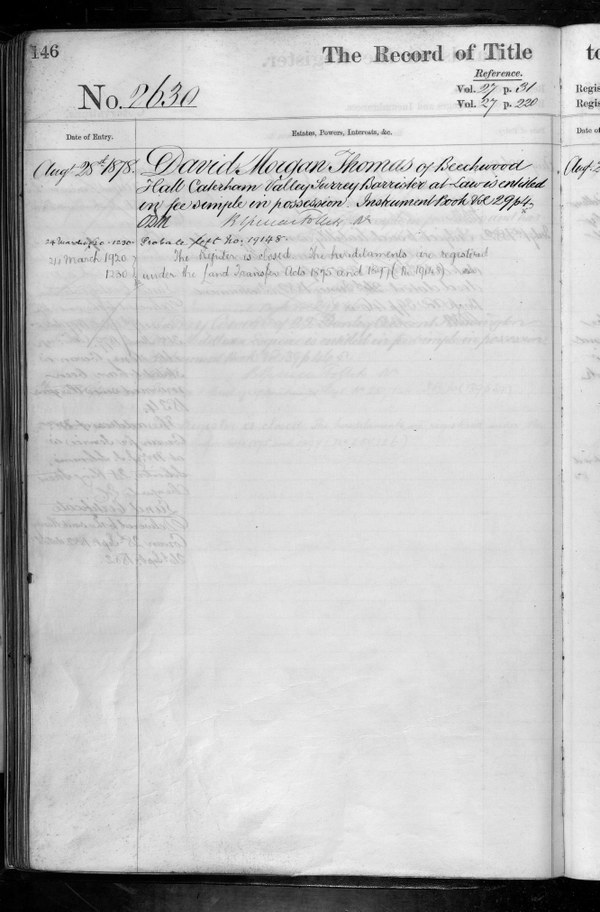 146
The Record of Title
Reference.
No. 2630
Vol. 27 p. 31
Vol. 27 p. 220
Date of Entry.
Estates, Powers, Interests, &c.
Augt. 28th 1878.
David Morgan Thomas of Beechwood
Hall Caterham Valley Surrey Barrister at Law is entitled
in fee simple in possession. Instrument Book Vol 29 p 4
24 March 1920 - 1230
Probate left No. 19148
24 March 1920
1230
The Register is closed. The hereditaments are registered
under the Land Transfer Acts 1875 and 1897
to
Regis
Regis
Date of
Aug. 2